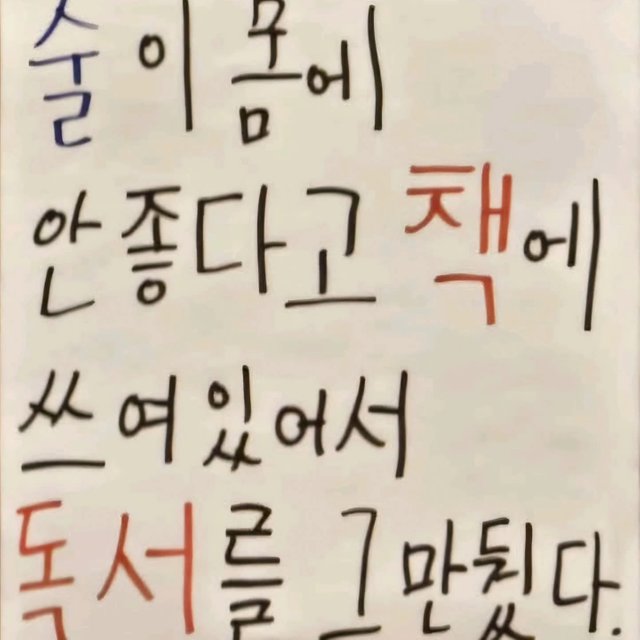 술이 몸에
안좋다고 책에
쓰여있어서
독서를 그만뒀다.